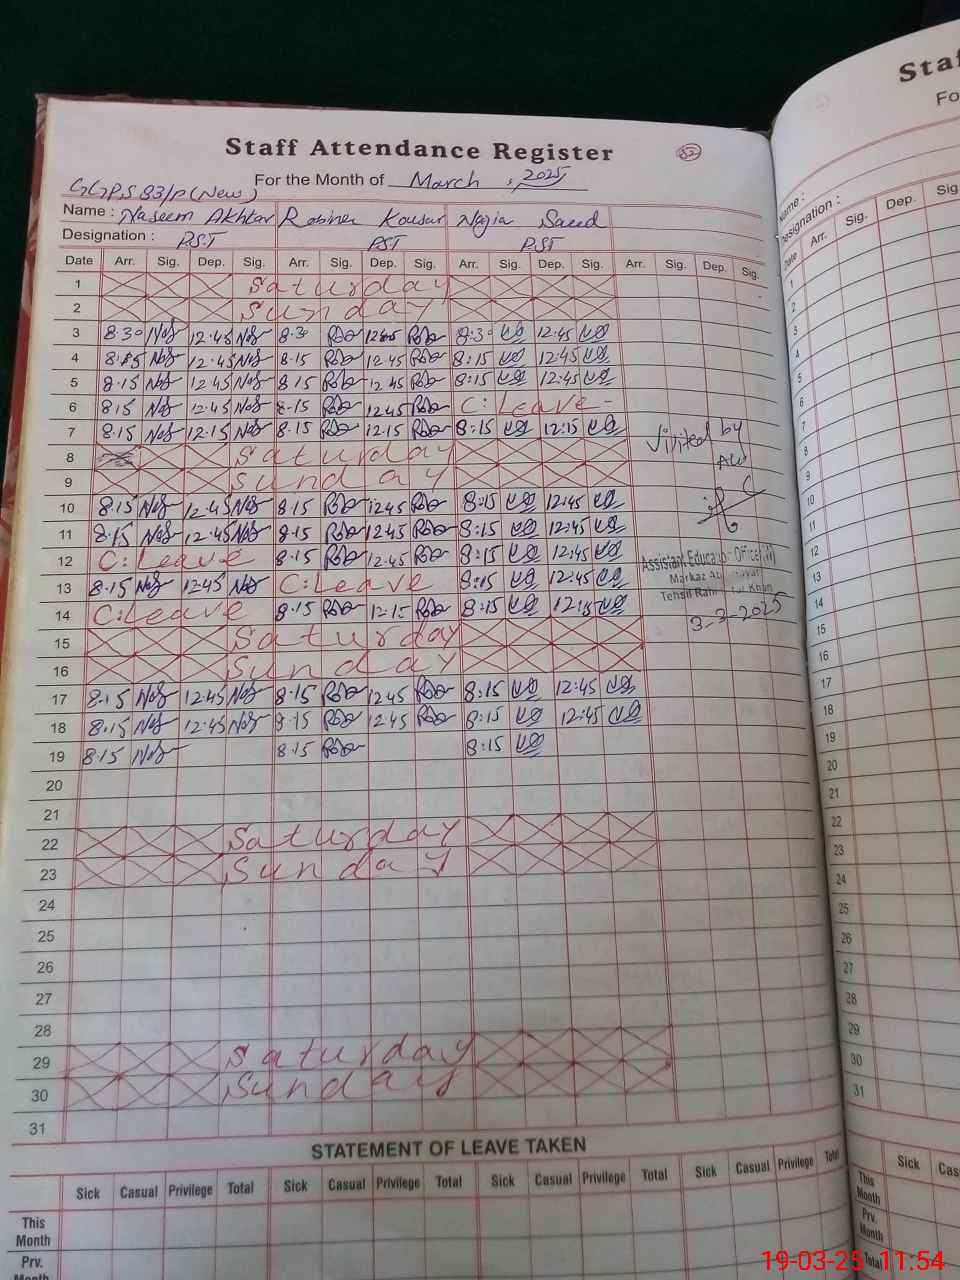 Staff Attendance Register
52
For the Month of March, 2025
GGPS 83/P (New)
Name : Naseem Akhtar Robina Kousar Nazia Saeed
Designation : PST PST PST
Date Arr. Sig. Dep. Sig. Arr. Sig. Dep. Sig. Arr. Sig. Dep. Sig. Arr. Sig. Dep. Sig.
1 Saturday
2 Sunday
3 8:30 12:45 8:30 12:45 8:30 12:45
4 8:15 12:45 8:15 12:45 8:15 12:45
5 8:15 12:45 8:15 12:45 8:15 12:45
6 8:15 12:45 8:15 12:45 C: Leave
7 8:15 12:15 8:15 12:15 8:15 12:15
8 Saturday
9 Sunday
10 8:15 12:45 8:15 12:45 8:15 12:45
11 8:15 12:45 8:15 12:45 8:15 12:45
12 C: Leave 8:15 12:45 8:15 12:45
13 8:15 12:45 C: Leave 8:15 12:45
14 C: Leave 8:15 12:15 8:15 12:15
15 Saturday
16 Sunday
17 8:15 12:45 8:15 12:45 8:15 12:45
18 8:15 12:45 8:15 12:45 8:15 12:45
19 8:15 8:15 8:15
20
21
22 Saturday
23 Sunday
24
25
26
27
28
29 Saturday
30 Sunday
31
Visited by
Assistant Education Officer
Markaz
Tehsil Rahim Yar Khan
3-3-2025
STATEMENT OF LEAVE TAKEN
Sick Casual Privilege Total Sick Casual Privilege Total Sick Casual Privilege Total Sick Casual Privilege Total
This Month
Prv. Month
Staf
Fo
Name :
Designation :
Date Arr. Sig. Dep. Sig
1
2
3
4
5
6
7
8
9
10
11
12
13
14
15
16
17
18
19
20
21
22
23
24
25
26
27
28
29
30
31
Sick Cas
This Month
Prv. Month
Total
19-03-25 11:54